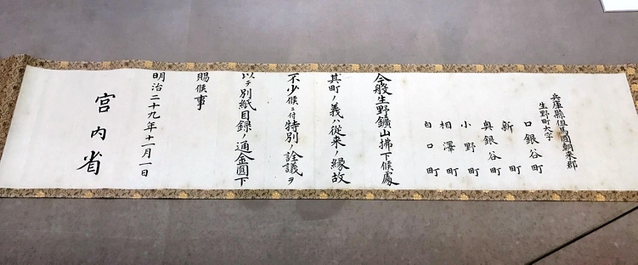 兵庫縣但馬國朝来郡
生野町大字
口銀谷町
新町
奥銀谷町
小野町
相澤町
白口町
今般生野鑛山拂下候處
其町ノ義ハ従来ノ縁故
不少候ニ付特別ノ詮議ヲ
以テ別紙目録ノ通金圓下
賜候事
明治二十九年十一月一日
宮内省